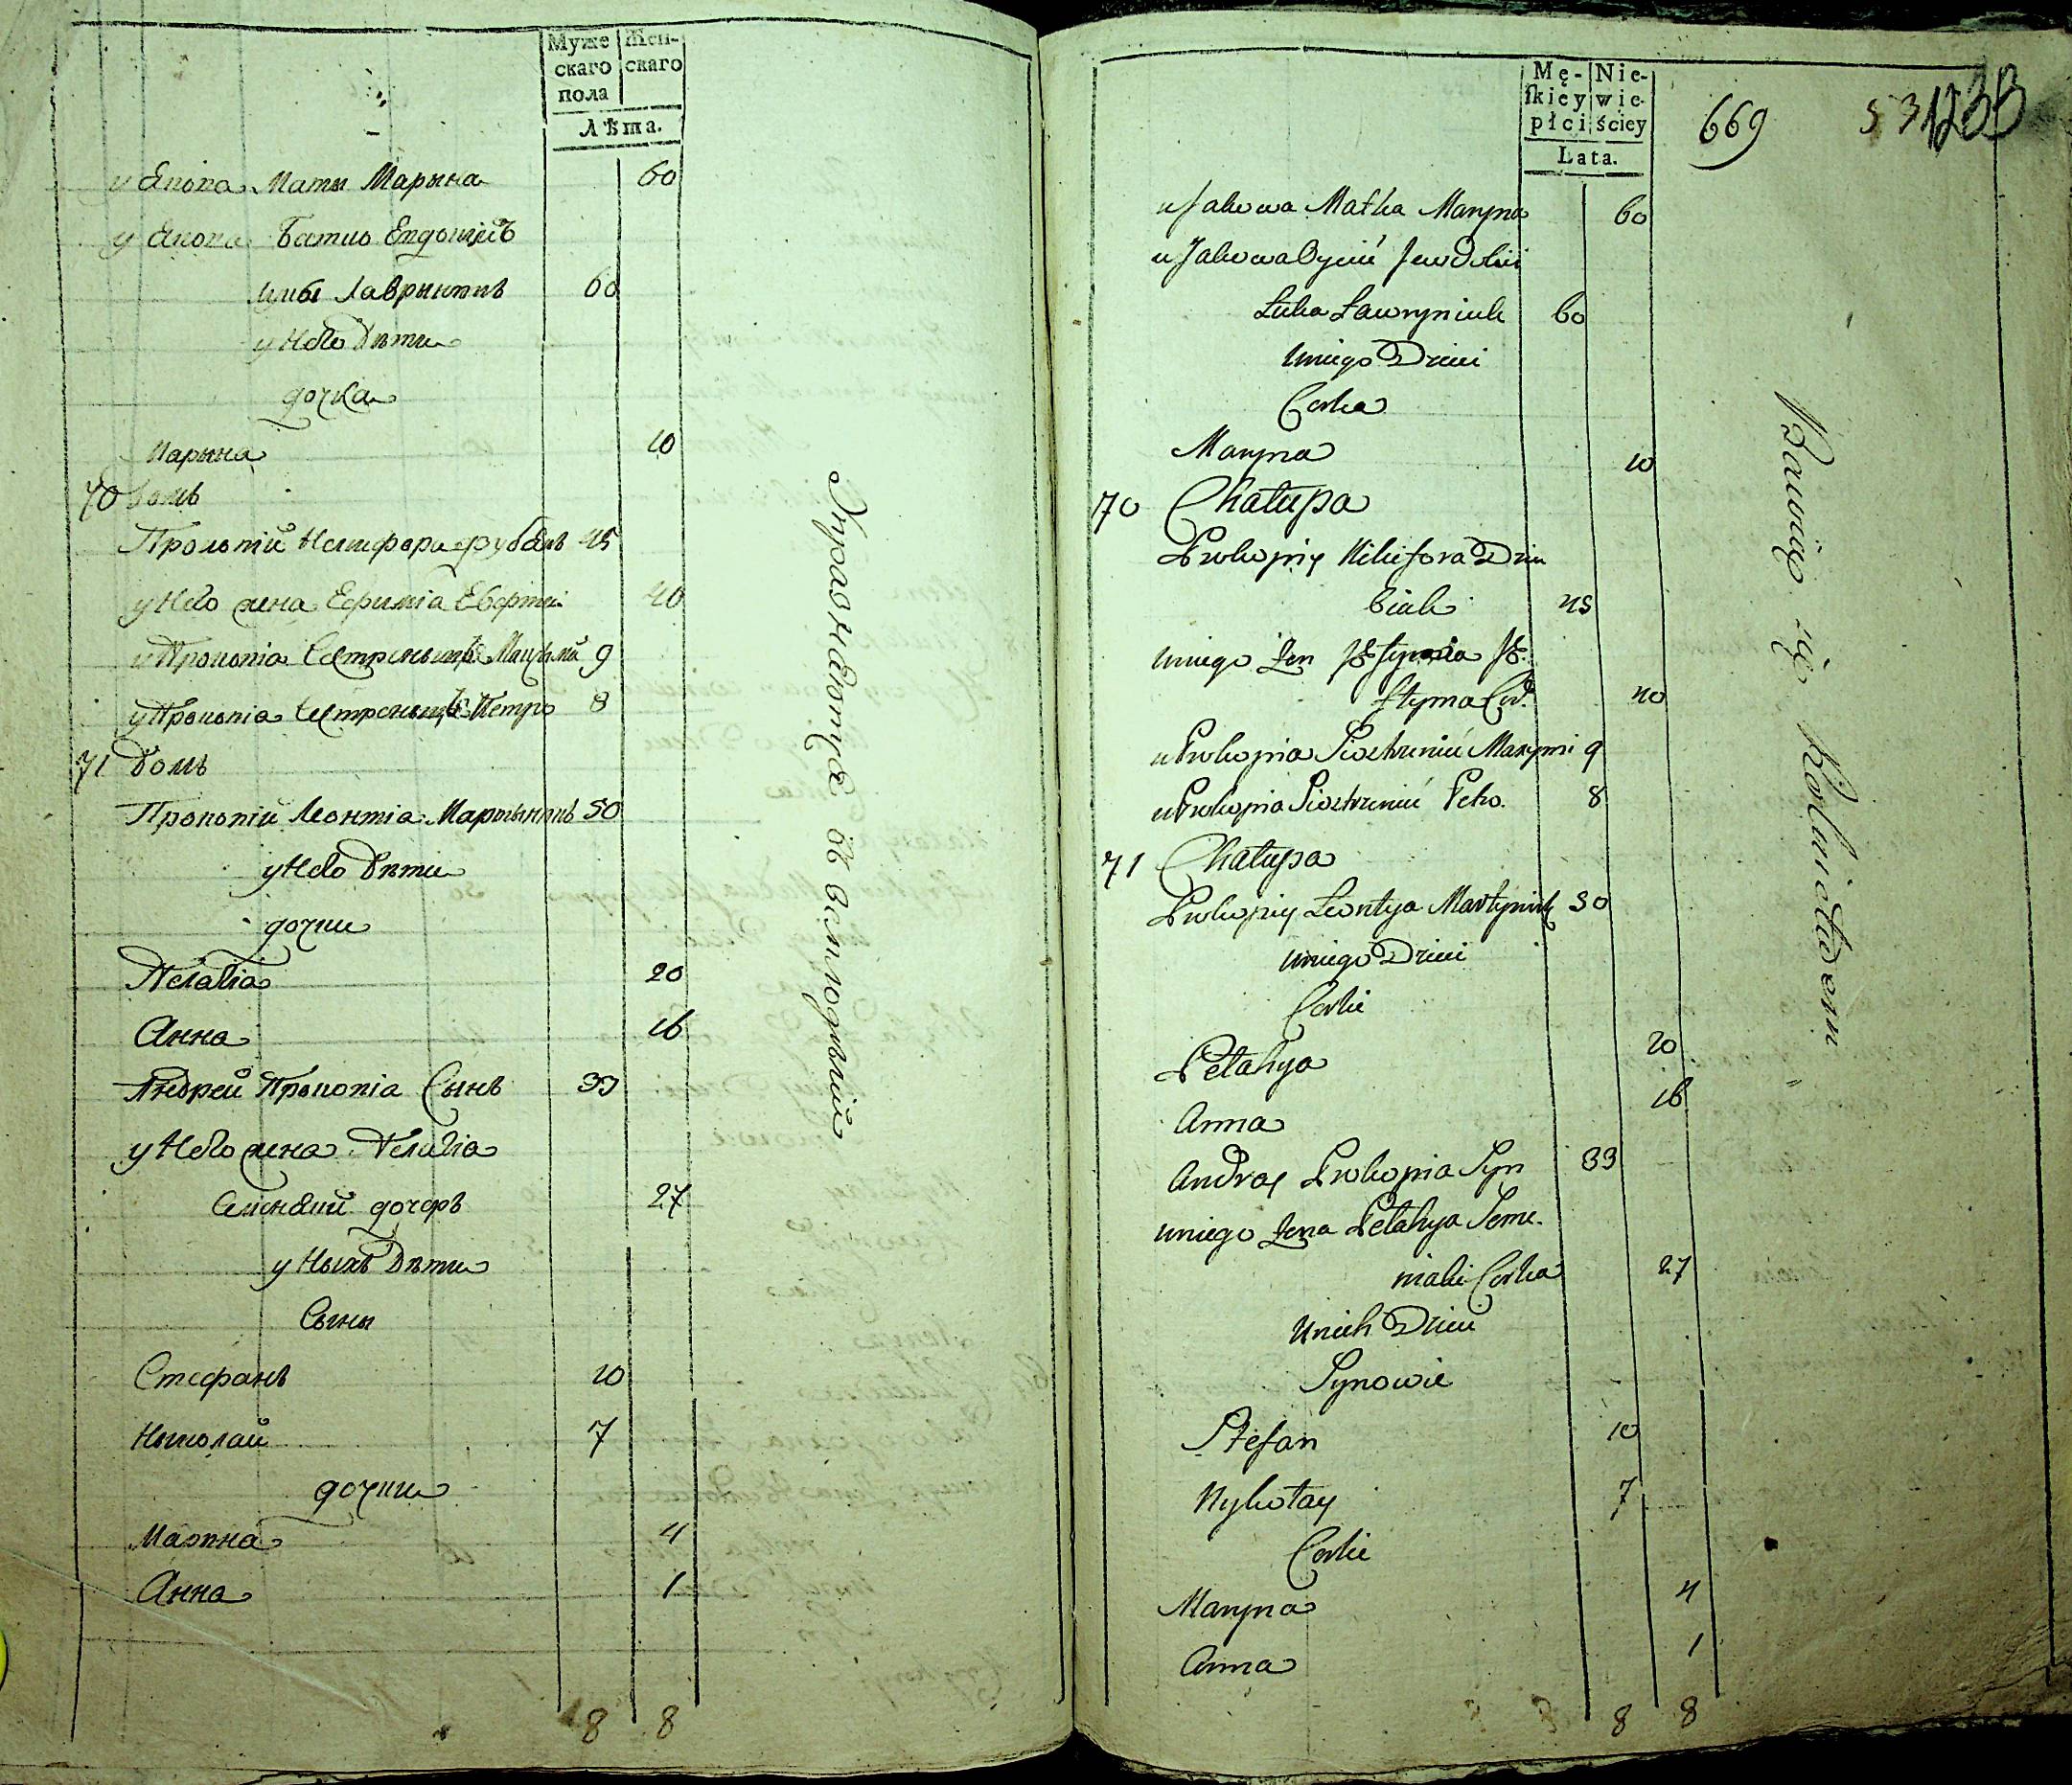 Муже
скаго
пола
Жен-
скаго
Лѣта.
у Якова Маты Марына 60
у Якова Батко Евдокіи
Лука Лаврынюкъ 60
у Него Дѣти
дочка
Марына 10
70 Домъ
Прокопій Никифора 45
у Него жена Ефимія 40
у Прокопія Сестренецъ Максимъ 9
у Прокопія Сестренецъ Петро 8
71 Домъ
Прокопій Леонтія Мартынюкъ 50
у Него Дѣти
дочки
Пелагія 20
Анна 16
Андрей Прокопія Сынъ 33
у Него жена Пелагія
дочеръ 27
у Ныхъ Дѣти
Сыны
Стефанъ 10
Ныколай 7
дочки
Марина 4
Анна 1
8 8
Mę-
skiey
płci
Nie-
wie-
ściey
Lata.
669
u Jakowa Matka Maryna 60
u Jakowa Oyciec Jewdokii
Łuka Ławryniuk 60
u niego Dzieci
Corka
Maryna 10
70 Chałupa
Prokopiy Nikifora Dziu
biak 45
u niego Żon
40
u Prokopia Siostrzeniec Maxym 9
u Prokopia Siostrzeniec Petro. 8
71 Chałupa
Prokopiy Leontya Martyniuk 50
u niego Dzieci
Corki
Pelahya 20
Anna 16
Andrey Prokopia Syn 33
u niego Żona Pelahya Seme-
niaki Corka 27
u nich Dzieci
Synowie
Stefan 10
Nykołay 7
Corki
Maryna 4
Anna 1
8 8